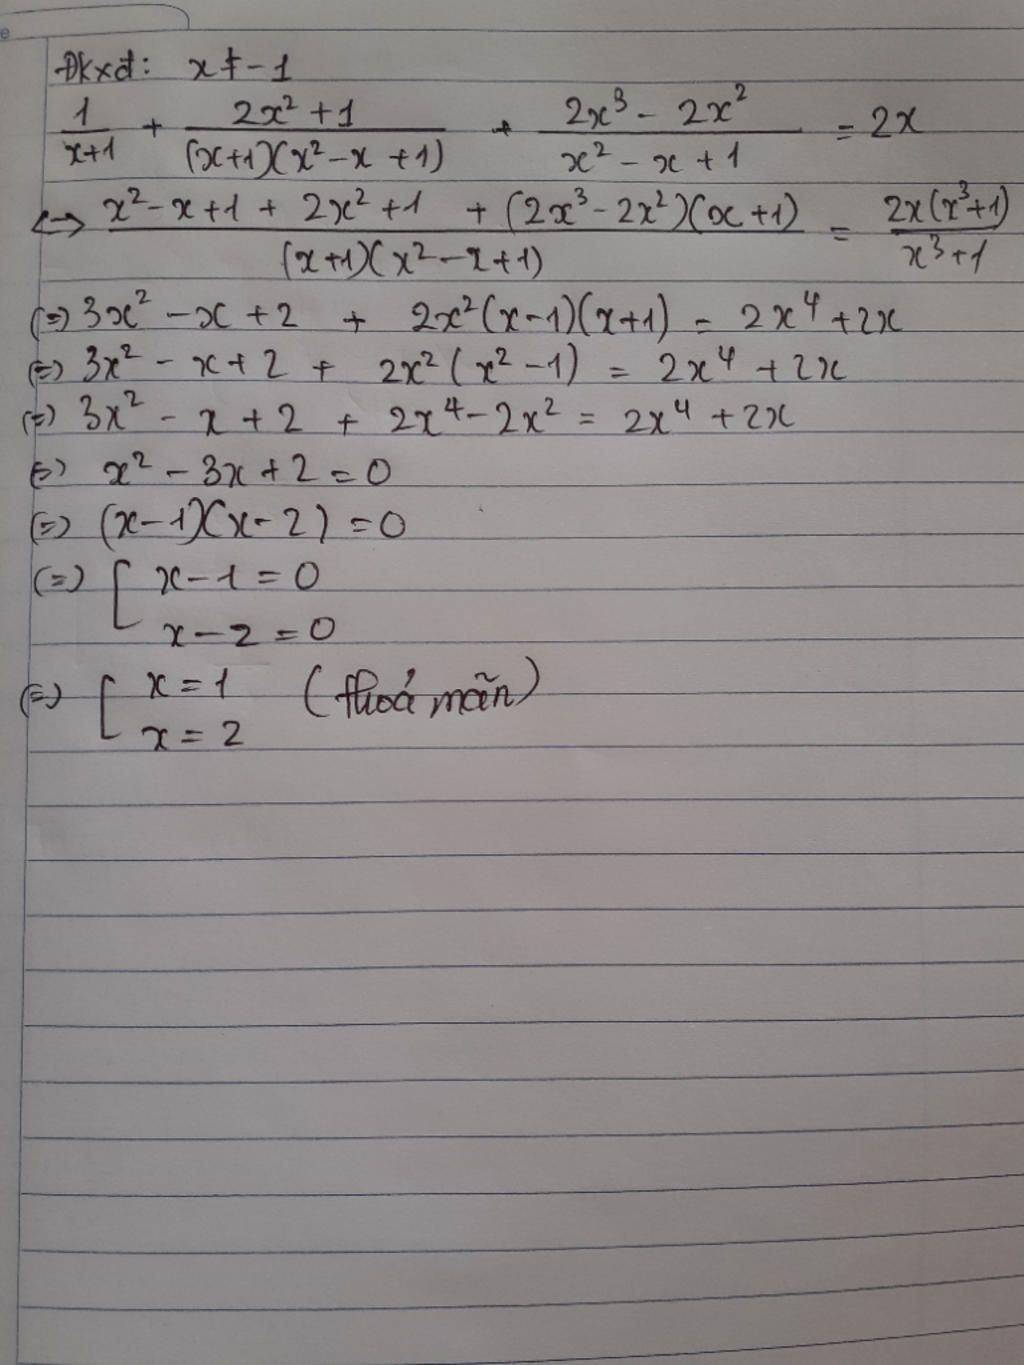 ĐKxđ: x ≠ -1
1/(x+1) + (2x² + 1)/((x+1)(x² - x + 1)) + (2x³ - 2x²)/(x² - x + 1) = 2x
<-> (x² - x + 1 + 2x² + 1 + (2x³ - 2x²)(x + 1))/((x+1)(x² - x + 1)) = (2x(x³+1))/(x³+1)
(=) 3x² - x + 2 + 2x²(x-1)(x+1) = 2x⁴ + 2x
(=) 3x² - x + 2 + 2x²(x² - 1) = 2x⁴ + 2x
(=) 3x² - x + 2 + 2x⁴ - 2x² = 2x⁴ + 2x
(=) x² - 3x + 2 = 0
(=) (x-1)(x-2) = 0
(=) [ x - 1 = 0
x - 2 = 0
(=) [ x = 1 (thoả mãn)
x = 2